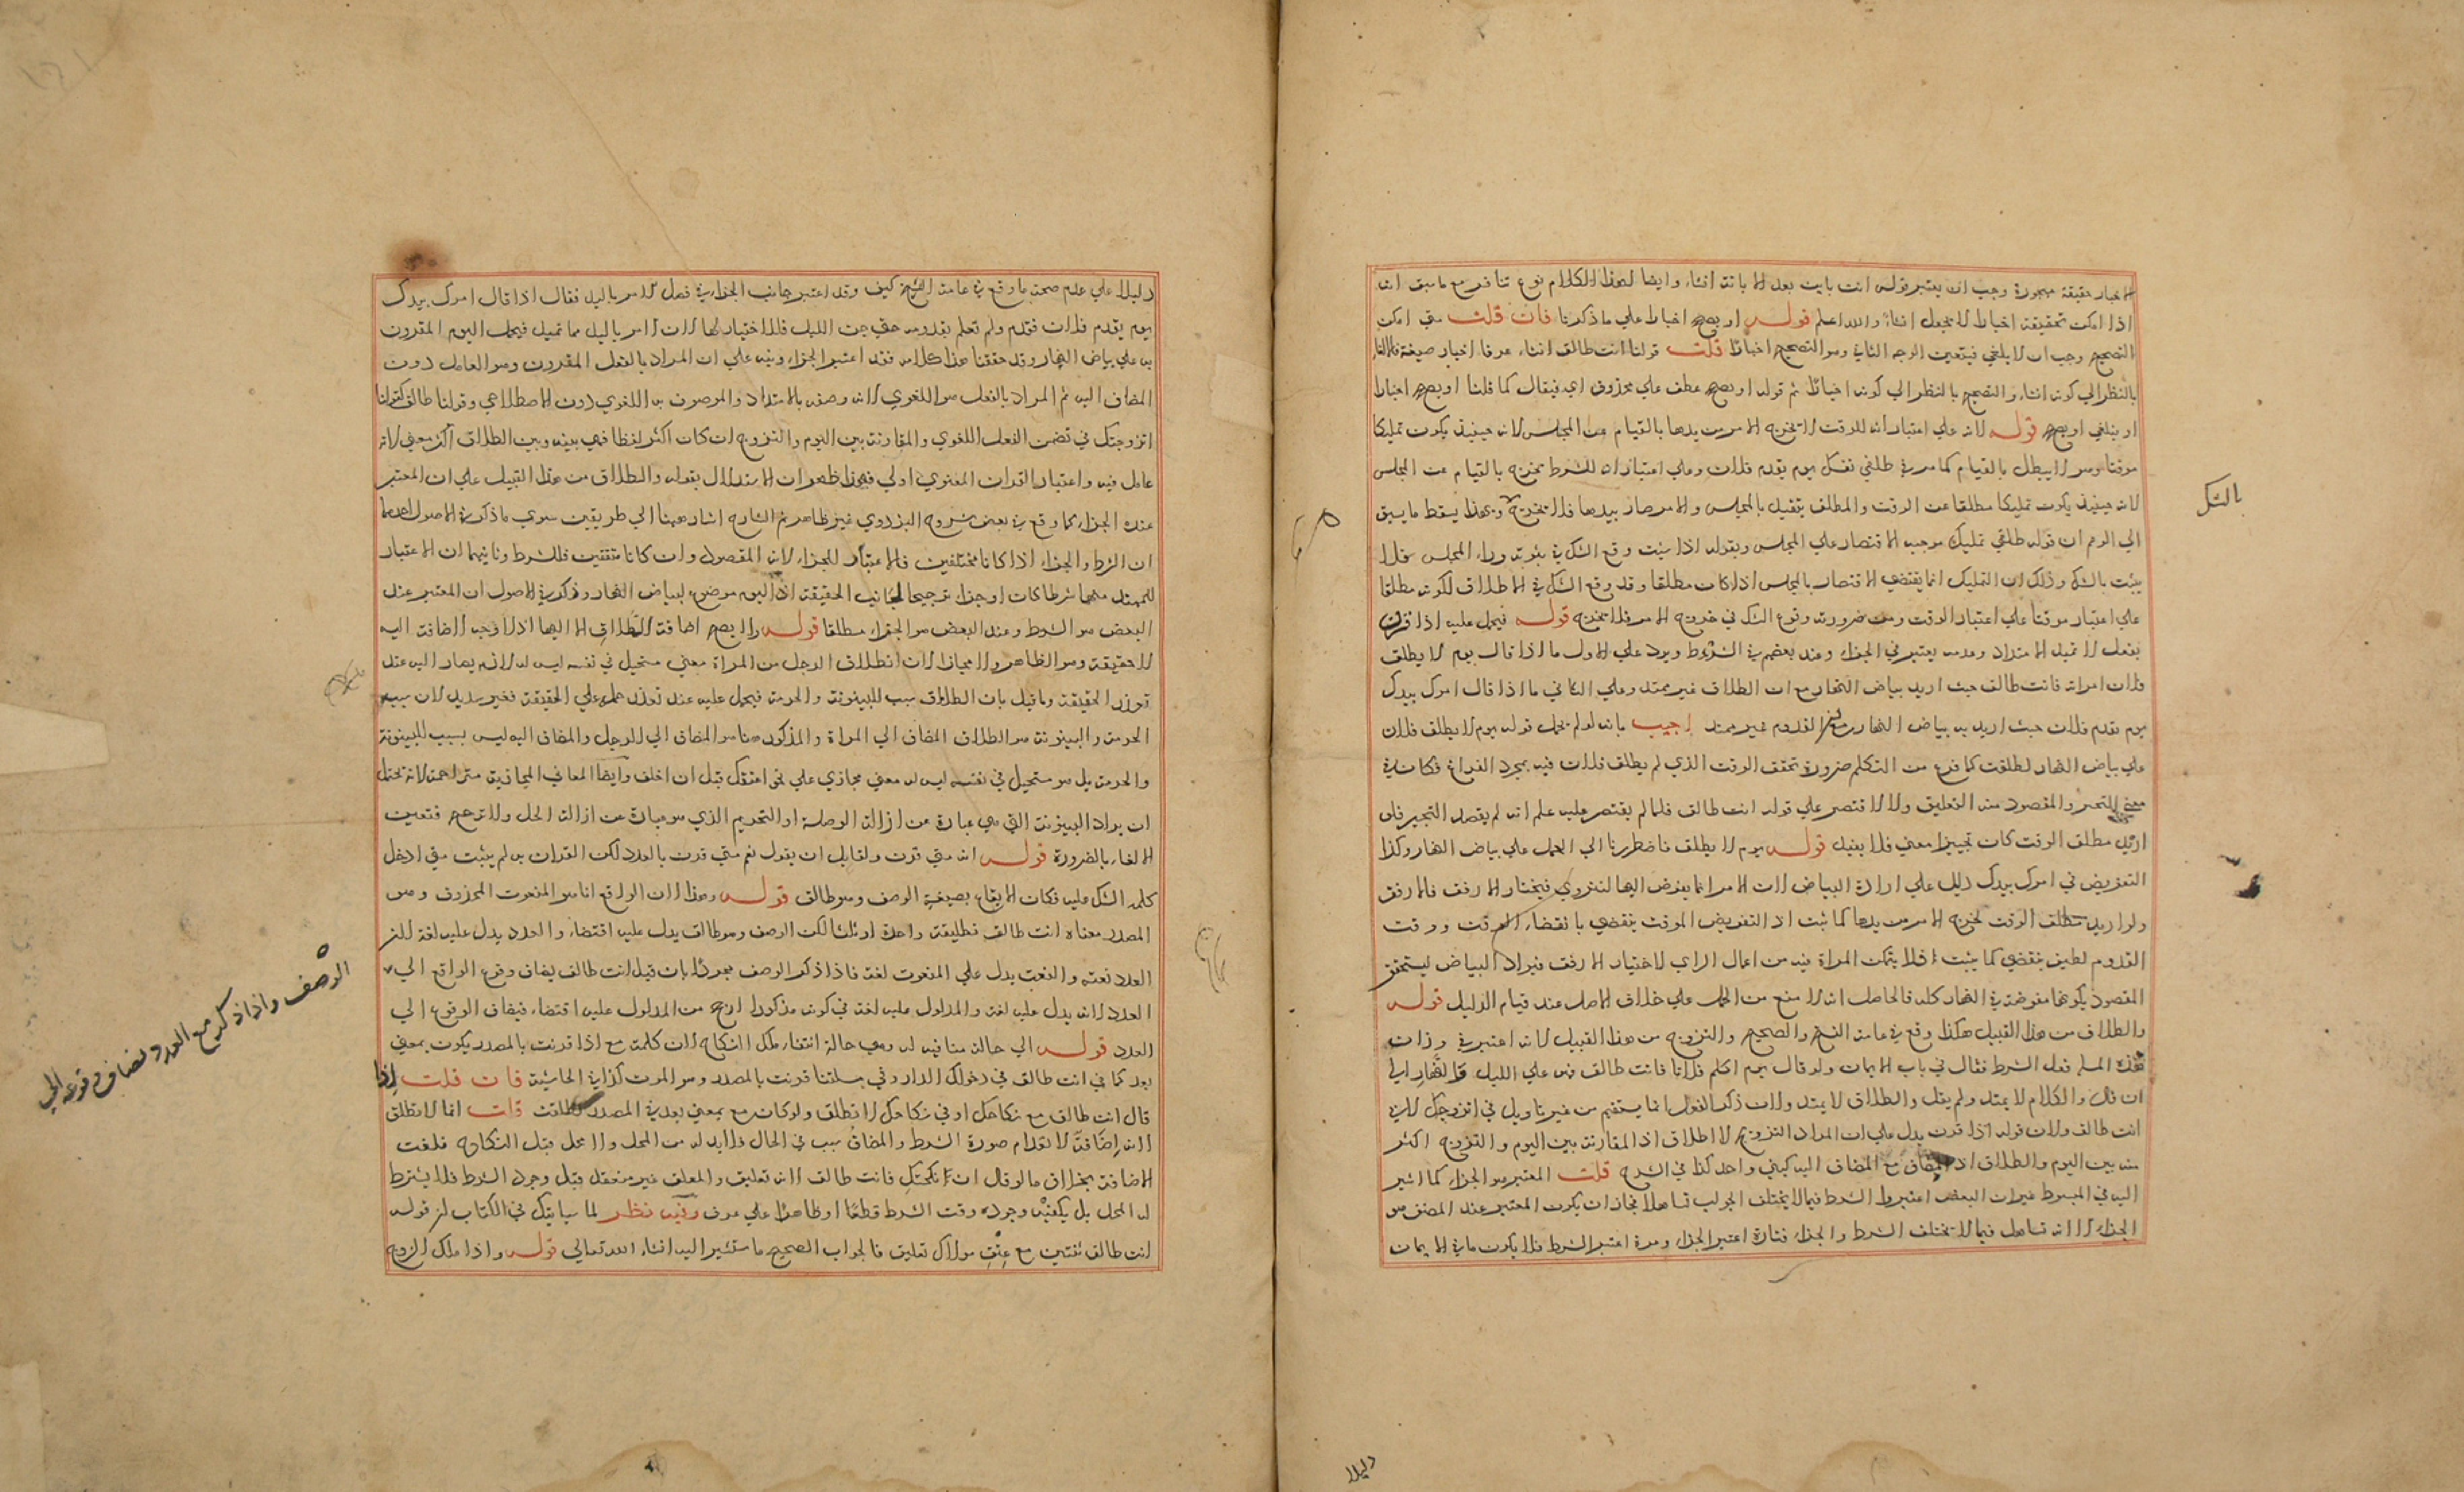 الاخبار حقيقة مهجورة وجب ان يعتبر قوله انت باين بعد الابانة انشاء وايضا لهذا الكلام نوع تنافر مع ما سبق انه
اذا امكن تحقيقه اخبارا لا يجعل انشاء والله اعلم قوله او يصح اخبارا على ما ذكرنا فان قلت متى امكن
التصحيح وجب ان لا يلغى فيتعين الوجه الثاني وهو التصحيح اخبارا قلت قولنا انت طالق انشاء عرفا اخبار صيغة فالالغاء
بالنظر الى كونه انشاء والتصحيح بالنظر الى كونه اخبارا ثم قوله او يصح عطف على محذوف اي فيقال كما قلنا او يصح اخبارا
او يلغى او يصح قوله لانه على اعتبار انه للوقت لا يخرج الامر من يدها بالقيام عن المجلس لانه حينئذ يكون تمليكا
موقتا وهو لا يبطل بالقيام كما مر في طلقي نفسك يوم يقدم فلان وعلى اعتبار انه للشرط يخرج بالقيام عن المجلس
لانه حينئذ يكون تمليكا مطلقا عن الوقت والمطلق يتقيد بالمجلس والامر صار بيدها فلا يخرج وبهذا يسقط ما يسبق
الى الوهم ان قوله طلقي تمليك موجبه الاقتصار على المجلس وبقوله اذا شئت وقع الشك في ثبوته وراء المجلس فلا
يثبت بالشك وذلك ان التمليك انما يقتضي الاقتصار بالمجلس اذا كان مطلقا وقد وقع الشك في الاطلاق لكونه مطلقا
على اعتبار موقتا على اعتبار الوقت ومن ضرورته وقوع الشك في خروج الامر فلا يخرج قوله فيحمل عليه اذا قرن
بفعل لا يمتد الامتداد وعدمه يعتبر في الجزاء وعند بعضهم في الشرط ويرد على الاول ما اذا قال يوم لا يطلق
فلان امراته فانت طالق حيث اريد بياض النهار مع ان الطلاق غير ممتد وعلى الثاني ما اذا قال امرك بيدك
يوم يقدم فلان حيث اريد به بياض النهار مع ان القدوم غير ممتد اجيب بانه لو لم يحمل قوله يوم لا يطلق فلان
على بياض النهار لطلقت كما فرغ من التكلم ضرورة تحقق الوقت الذي لم يطلق فلان فيه بمجرد الفراغ فكان في
معنى التنجيز والمقصود منه التعليق ولا لاقتصر على قوله انت طالق فلما لم يقتصر عليه علم انه لم يقصد التنجيز فلو
اريد مطلق الوقت كان تنجيزا معنى فلا يفيد قوله يوم لا يطلق فاضطررنا الى الحمل على بياض النهار وكذا
التفويض في امرك بيدك دليل على ارادة البياض لان الامر انما يفوض اليها لتتروى فيختار الارفق فالارفق
ولو اريد مطلق الوقت لخرج الامر من يدها كما ثبت اذ التفويض الموقت ينقضي بانقضاء الوقت ووقت
القدوم لطيف ينقضي كما يثبت فلا يتمكن المراة فيه من اعمال الراي لاختيار الارفق فيراد البياض ليستحق
المقصود بكونها مفوضة في النهار كله فالحاصل انه لا منع من الحمل على خلاف الاصل عند قيام الدليل قوله
والطلاق من هذا القبيل هكذا وقع في عامة النسخ والصحيح والتزوج من هذا القبيل لانه اعتبر في
هذه المسئلة فعل الشرط فقال في باب الايمان ولو قال يوم اكلم فلانا فانت طالق فهو على الليل والنهار الى
ان قال والكلام لا يمتد ولم يقل والطلاق لا يمتد ولان ذكر الفعل انما يستقيم من غير تاويل في اتزوجك لا في
انت طالق ولان قوله اذا قرن يدل على ان المراد التزوج لا الطلاق اذ المقارنة بين اليوم والتزوج اكثر
منه بين اليوم والطلاق اذ المضاف مع المضاف اليه كشئ واحد كذا في الشرح قلت المعتبر هو الجزاء كما اشير
اليه في المبسوط غير ان البعض اعتبروا الشرط فيما لا يختلف الجواب تساهلا فجاز ان يكون المعتبر عند المصنف هو
الجزاء الا انه تساهل فيما لا يختلف الشرط والجزاء فتارة اعتبر الجزاء ومرة اعتبر الشرط فلا يكون ما في الايمان
بالشك
دليلا
دليلا على عدم صحة ما وقع في عامة النسخ كيف وقد اعتبر جانب الجزاء في فصل الامر باليد فقال اذا قال امرك بيدك
يوم يقدم فلان فقدم ولم تعلم بقدومه حتى جن الليل فلا اختيار لها لان الامر باليد مما يمتد فيحمل اليوم المقرون
به على بياض النهار وقد حققنا هذا كلامه فقد اعتبر الجزاء ونبه على ان المراد بالفعل المقرون وهو العامل دون
المضاف اليه ثم المراد بالفعل هو اللغوي لانه وصف بالامتداد والموصوف به اللغوي دون الاصطلاحي وقولنا طالق كقولنا
اتزوجتك في تضمن الفعل اللغوي والمقارنة بين اليوم والتزوج ان كان اكثر لفظا فهي بينه وبين الطلاق اكثر معنى لانه
عامل فيه واعتبار القران المعنوي اولى فبهذا ظهر ان الاستدلال بقوله والطلاق من هذا القبيل على ان المعتبر
عنده الجزاء كما وقع في بعض شروح البزدوي غير ظاهر ثم الشارح اشار ههنا الى طريقين سوى ما ذكر في الاصول احدهما
ان الشرط والجزاء اذا كانا مختلفين فالاعتبار للجزاء لانه المقصود وان كانا متفقين فللشرط وثانيهما ان الاعتبار
للممتد منهما شرطا كان او جزاء ترجيحا لجانب الحقيقة اذ اليوم موضوع لبياض النهار وذكر في الاصول ان المعتبر عند
البعض هو الشرط وعند البعض هو الجزاء مطلقا قوله ولا يصح اضافة الطلاق الا اليها اذ لا وجه لاضافته اليه
لا حقيقة وهو الظاهر ولا مجازا لان انطلاق الرجل من المراة معنى مستحيل في نفسه ليس له لازم يصار اليه عند
تعذر الحقيقة وما قيل بان الطلاق سبب للبينونة والحرمة فيحمل عليه عند تعذر حمله على الحقيقة فغير سديد لان سبب
الحرمة والبينونة هو الطلاق المضاف الى المراة والمذكور هنا هو المضاف الى الرجل والمضاف اليه ليس بسبب للبينونة
والحرمة بل هو مستحيل في نفسه ليس له معنى مجازي على نحو اعتقك قبل ان اخلق وايضا المعاني المجازية متزاحمة لانه يحتمل
ان يراد البينونة التي هي عبارة عن ازالة الوصلة او التحريم الذي هو عبارة عن ازالة الحل ولا ترجح فتعين
الالغاء بالضرورة قوله انه متى قرن ولقايل ان يقول نعم متى قرن بالعدد لكن القران به لم يثبت متى ادخل
كلمة الشك عليه فكان الايقاع بصيغة الوصف وهو طالق قوله وهذا لان الواقع انما هو المنعوت المحذوف وهو
المصدر معناه انت طالق تطليقة واحدة او ثلثا لكن الوصف وهو طالق يدل عليه اقتضاء والعدد يدل عليه لغة لان
العدد نعته والنعت يدل على المنعوت لغة فاذا ذكر الوصف مجردا بان قيل انت طالق يضاف وقوع الواقع الى
العدد لانه يدل عليه لغة والمدلول عليه لغة في كونه مذكورا ارجح من المدلول عليه اقتضاء فيضاف الوقوع الى
العدد قوله الى حالة منافية له وهي حالة انتفاء ملك النكاح لان كلمة مع اذا قرنت بالمصدر يكون بمعنى
بعد كما في انت طالق في دخولك الدار وفي مسئلتنا قرنت بالمصدر وهو الموت كذا في الحاشية فان قلت اذا
قال انت طالق مع نكاحك او في نكاحك لا تطلق ولو كان مع بمعنى بعد في المصدر لطلقت قلت انما لا تطلق
لانه اضافة لانعدام صورة الشرط والمضاف سبب في الحال فلا بد له من المحل ولا محل قبل النكاح فلغت
الاضافة بخلاف ما لو قال ان نكحتك فانت طالق لانه تعليق والمعلق غير منعقد قبل وجود الشرط فلا يشترط
له المحل بل يكفيه وجوده وقت الشرط قطعا او ظاهرا على عرف وفيه نظر لما سياتيك في الكتاب ان قوله
انت طالق ثنتين مع عتق مولاك تعليق فالجواب الصحيح ما سنشير اليه ان شاء الله تعالى قوله واذا ملك الزوج
الوصف واذا ذكر مع العدد يضاف وقوعه الى